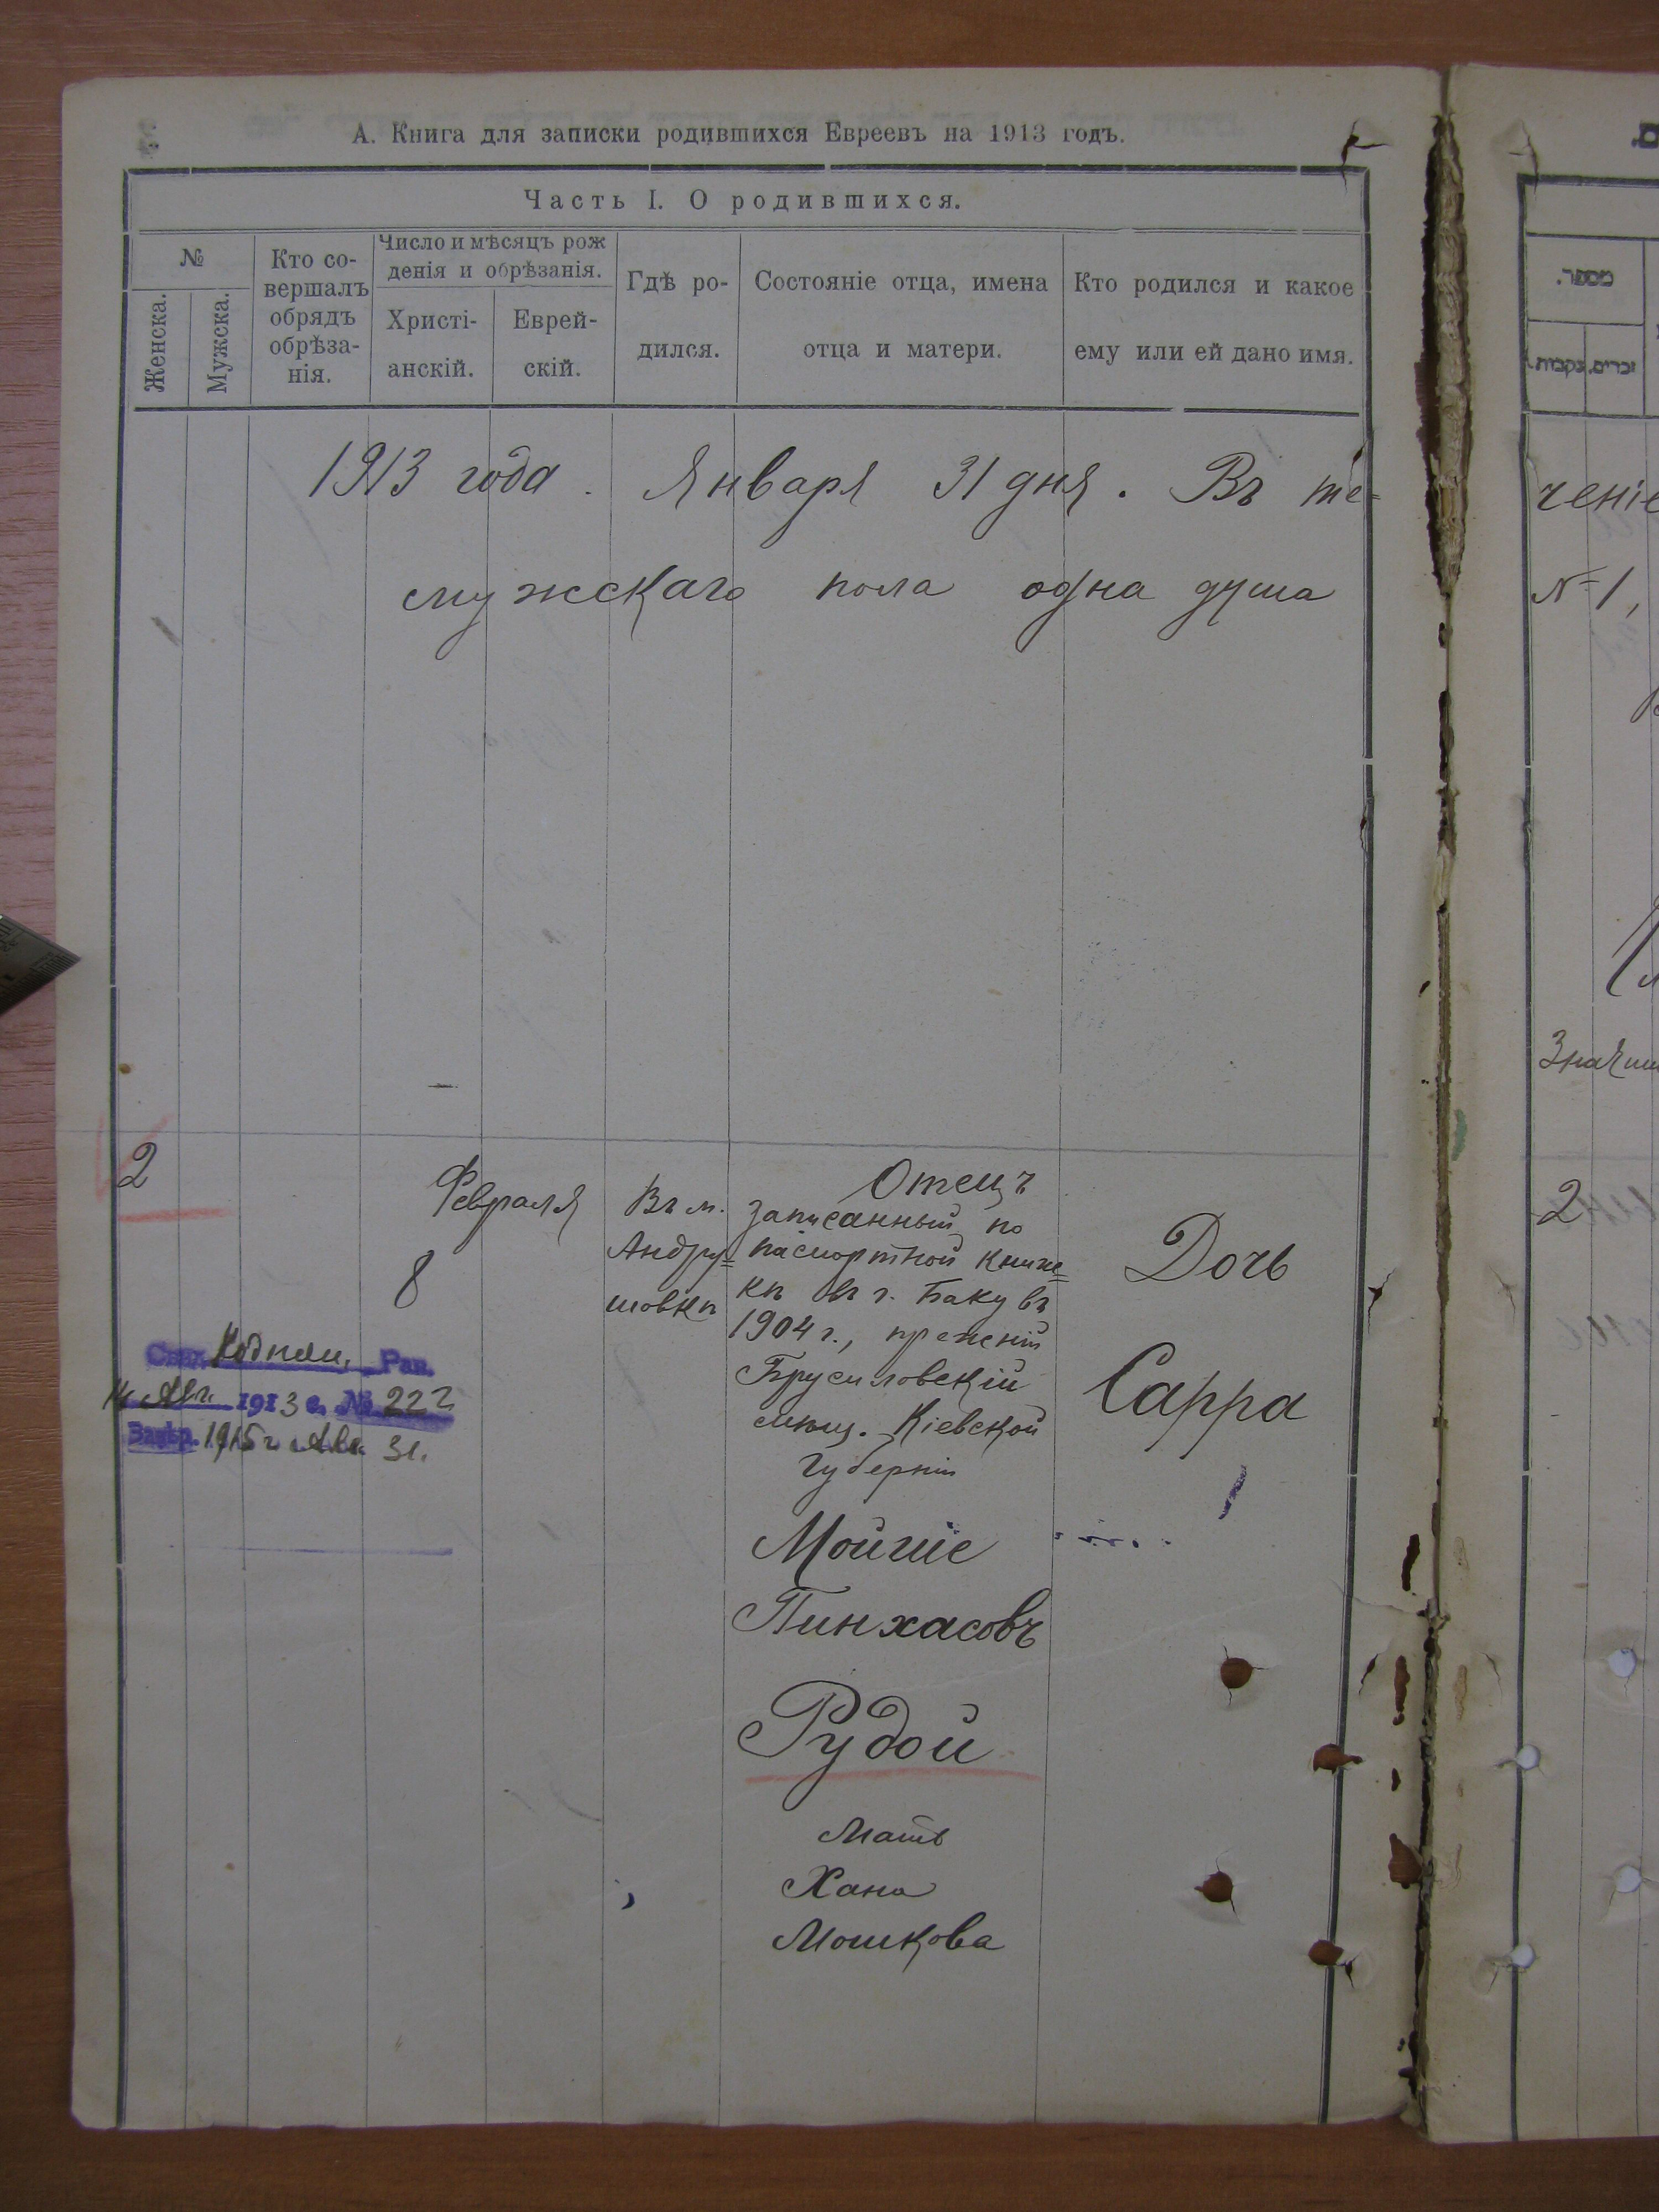 А. Книга для записки родившихся Евреевъ на 1913 годъ.
Часть I. О родившихся.
№
Женска.
Мужска.
Кто со-
вершалъ
обрядъ
обрѣза-
нія.
Число и мѣсяцъ рож
денія и обрѣзанія.
Христі-
анскій.
Еврей-
скій.
Гдѣ ро-
дился.
Состояніе отца, имена
отца и матери.
Кто родился и какое
ему или ей дано имя.
1913 года. Января 31 дня. Въ те=
мужскаго пола одна душа
2
Февраля
8
Въ м.
Андру=
шовкѣ
Отецъ
записанный по
паспортной книж=
кѣ въ г. Баку въ
1904 г., прежній
Брусиловскій
мѣщ. Кіевской
Губерніи
Мойше
Пинхасовъ
Рудой
Мать
Хана
Мошкова
Дочь
Сарра
Рав.
14 Авг. 1913 г. № 222
1915 г. Авг. 31.
מספר.
נקבות.
זכרים.
ченіе
№ 1,
2